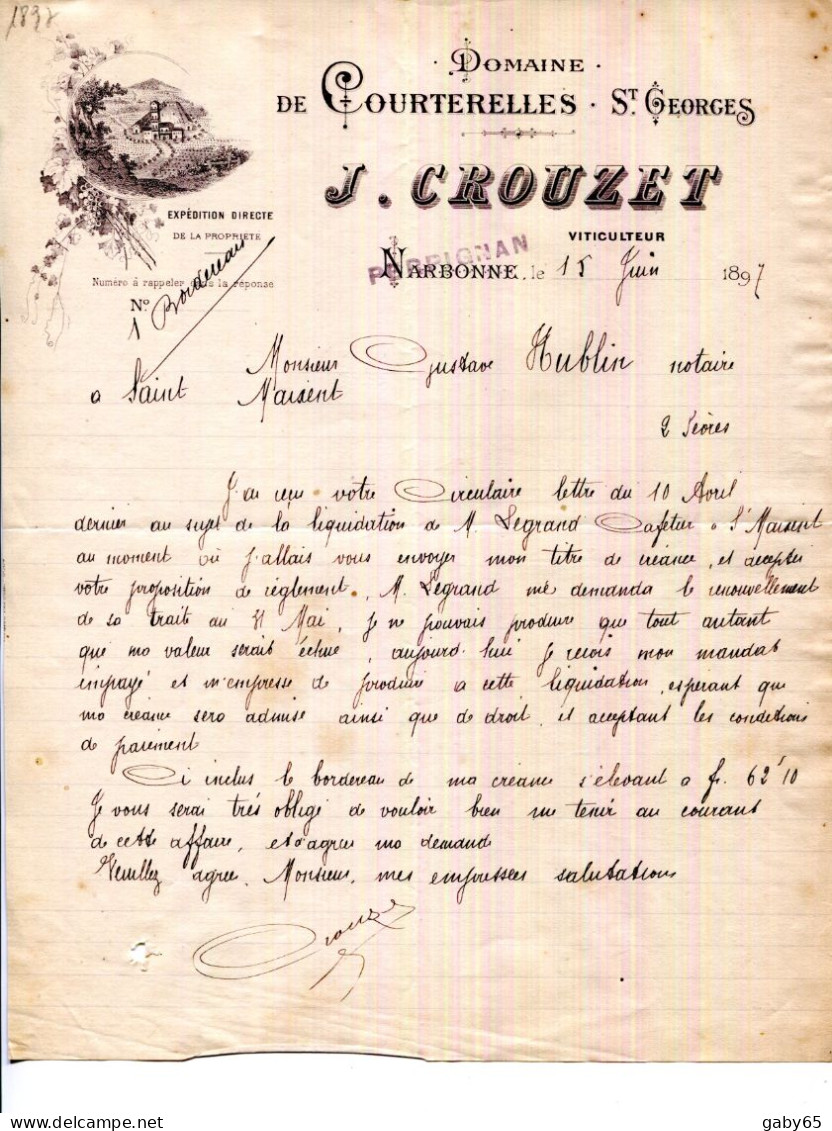 1897
DOMAINE
DE COURTERELLES · ST. GEORGES
J. CROUZET
EXPÉDITION DIRECTE
DE LA PROPRIÉTÉ
VITICULTEUR
PERPIGNAN
NARBONNE, le 15 Juin 1897
Numéro à rappeler dans la réponse
N°
1 Bordereau
Monsieur Gustave Hublin notaire
a Saint Maixent
2 Sèvres
J'ai reçu votre Circulaire lettre du 10 Avril
dernier au sujet de la liquidation de M. Legrand Cafetier a St Maixent
au moment où j'allais vous envoyer mon titre de créance, et accepter
votre proposition de réglement, M. Legrand me demanda le renouvellement
de sa traite au 31 Mai, je ne pouvais produire que tout autant
que ma valeur serait échue, aujourd'hui je reçois mon mandat
impayé et m'empresse de produire a cette liquidation, esperant que
ma créance sera admise ainsi que de droit, et acceptant les conditions
de paiement
Ci inclus le bordereau de ma créance s'élevant a fr. 62f10
Je vous serai trés obligé de vouloir bien me tenir au courant
de cette affaire, et d'agréer ma demande
Veuillez agréer, Monsieur, mes empressées salutations
Crouzet
gaby65